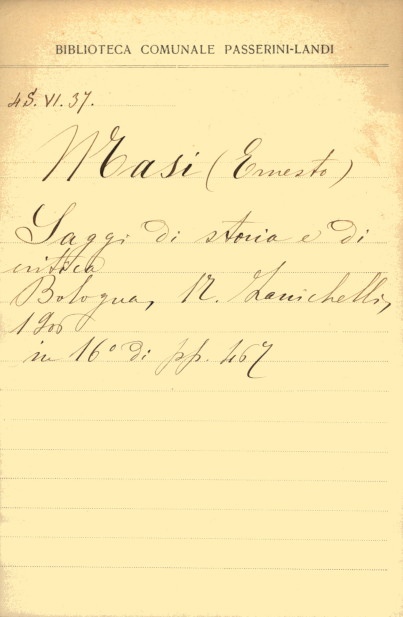 BIBLIOTECA COMUNALE PASSERINI-LANDI
4S. VI. 37.
Masi (Ernesto)
Saggi di storia e di
critica
Bologna, N. Zanichelli,
1906
in 16° di pp. 467